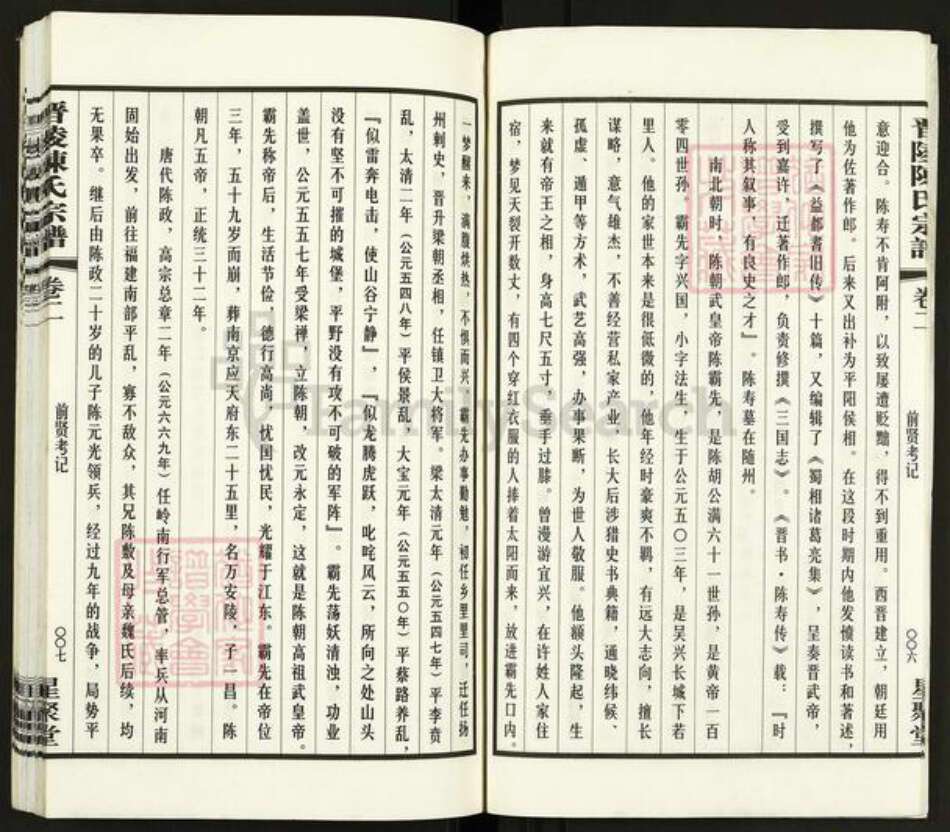 晋陵陈氏宗谱
卷二
前贤考记
〇〇六
星聚堂
意迎合。陈寿不肯阿附，以致屡遭贬黜，得不到重用。西晋建立，朝廷用
他为佐著作郎。后来又出补为平阳侯相。在这段时期内他发愤读书和著述，
撰写了《益都耆旧传》十篇，又编辑了《蜀相诸葛亮集》，呈奏晋武帝，
受到嘉许，迁著作郎，负责修撰《三国志》。《晋书·陈寿传》载：『时
人称其叙事，有良史之才』。陈寿墓在随州。
南北朝时，陈朝武皇帝陈霸先，是陈胡公满六十一世孙，是黄帝一百
零四世孙。霸先字兴国，小字法生，生于公元五〇三年，是吴兴长城下若
里人。他的家世本来是很低微的，他年经时豪爽不羁，有远大志向，擅长
谋略，意气雄杰，不善经营私家产业，长大后涉猎史书典籍，通晓纬候、
孤虚、遁甲等方术，武艺高强，办事果断，为世人敬服。他额头隆起，生
来就有帝王之相，身高七尺五寸，垂手过膝。曾漫游宜兴，在许姓人家住
宿，梦见天裂开数丈，有四个穿红衣服的人捧着太阳而来，放进霸先口内。
一梦醒来，满腹烘热，不惧而兴，霸先办事勤勉，初任乡里里司，迁任扬
州刺史，晋升梁朝丞相，任镇卫大将军。梁太清元年（公元五四七年）平李贲
乱，太清二年（公元五四八年）平侯景乱，大宝元年（公元五五〇年）平蔡路养乱，
『似雷奔电击，使山谷宁静』，『似龙腾虎跃，叱咤风云，所向之处山头
没有坚不可摧的城堡，平野没有攻不可破的军阵』。霸先荡妖清浊，功业
盖世，公元五五七年受梁禅，立陈朝，改元永定，这就是陈朝高祖武皇帝。
霸先称帝后，生活节俭，德行高尚，忧国忧民，光耀于江东。霸先在帝位
三年，五十九岁而崩，葬南京应天府东二十五里，名万安陵，子一昌。陈
朝凡五帝，正统三十二年。
唐代陈政，高宗总章二年（公元六六九年）任岭南行军总管，率兵从河南
固始出发，前往福建南部平乱，寡不敌众，其兄陈敷及母亲魏氏后续，均
无果卒。继后由陈政二十岁的儿子陈元光领兵，经过九年的战争，局势平
晋陵陈氏宗谱
卷二
前贤考记
〇〇七
星聚堂
FamilySearch